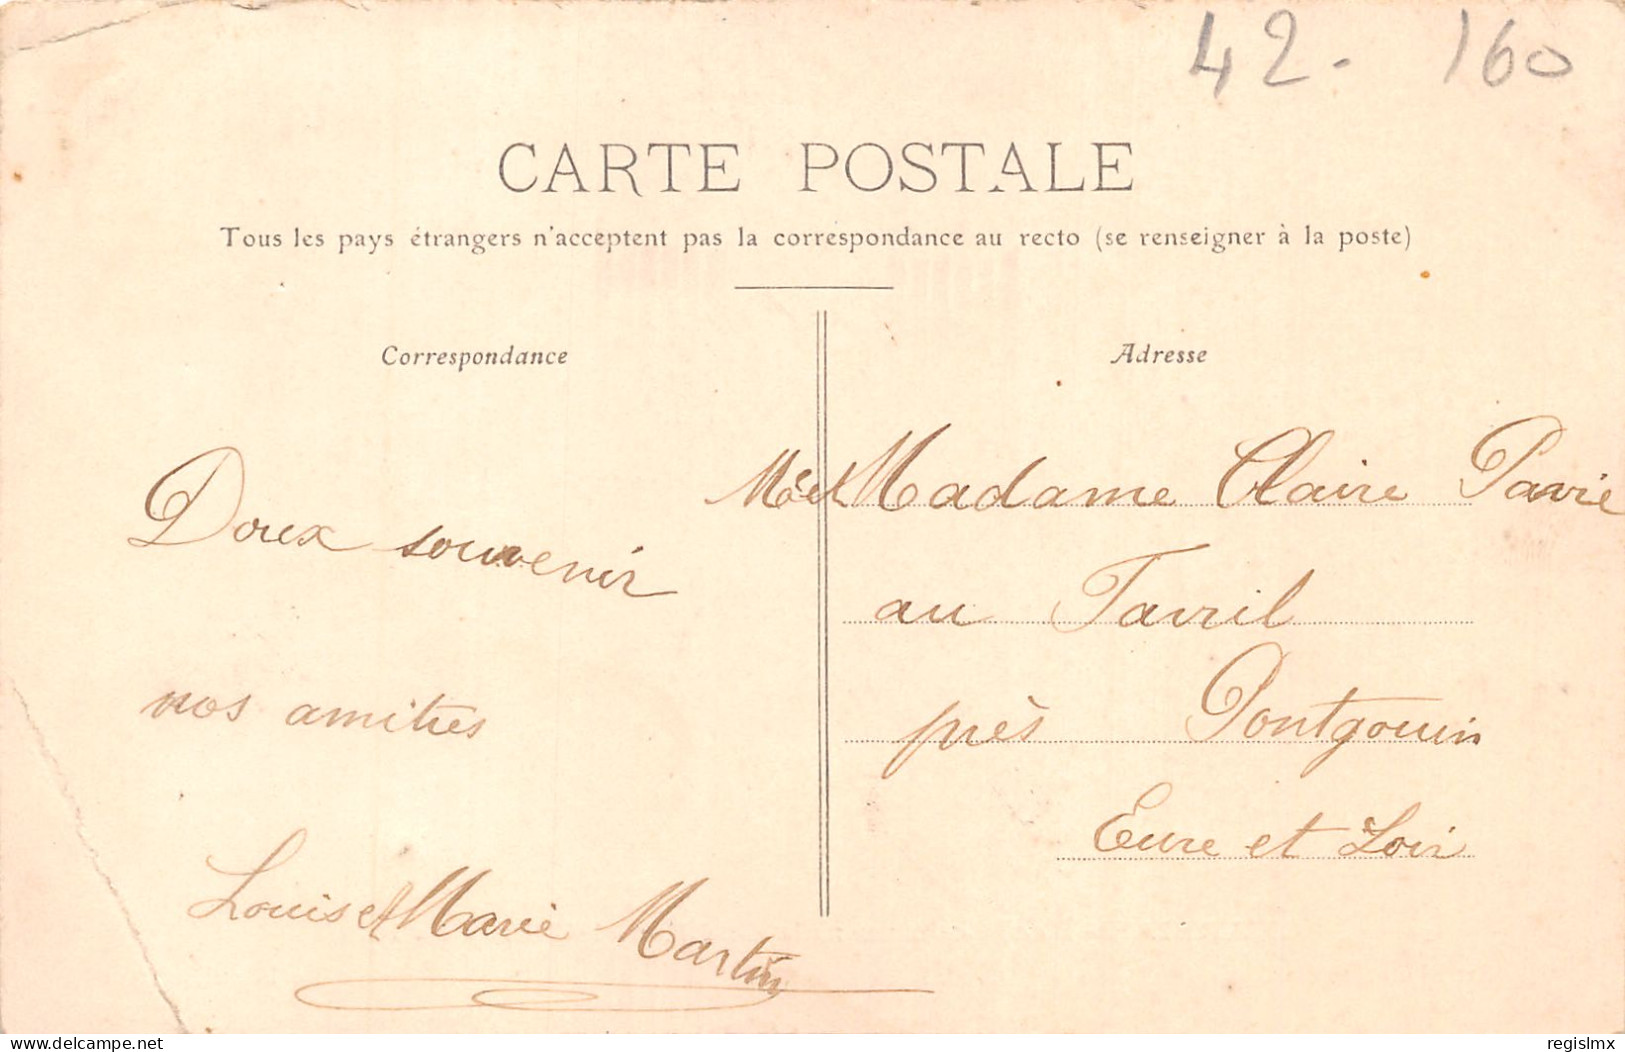 42. 160
CARTE POSTALE
Tous les pays étrangers n'acceptent pas la correspondance au recto (se renseigner à la poste)
Correspondance
Doux souvenir
nos amitiés
Louis et Marie Martin
Adresse
Mr et Madame Claire Pavie
au Tavril
près Pontgouin
Eure et Loir
www.delcampe.net
regislmx